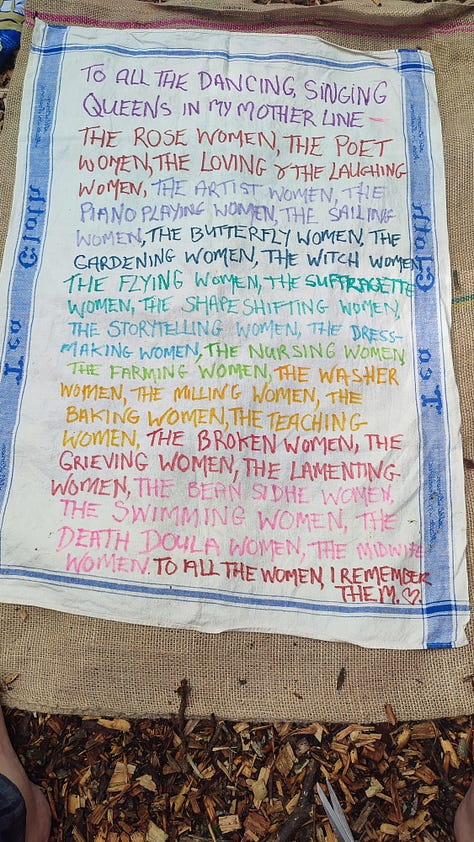 TO ALL THE DANCING, SINGING
QUEENS IN MY MOTHER LINE —
THE ROSE WOMEN, THE POET
WOMEN, THE LOVING & THE LAUGHING
WOMEN, THE ARTIST WOMEN, THE
PIANO PLAYING WOMEN, THE SAILING
WOMEN, THE BUTTERFLY WOMEN, THE
GARDENING WOMEN, THE WITCH WOMEN,
THE FLYING WOMEN, THE SUFFRAGETTE
WOMEN, THE SHAPESHIFTING WOMEN,
THE STORYTELLING WOMEN, THE DRESS-
MAKING WOMEN, THE NURSING WOMEN,
THE FARMING WOMEN, THE WASHER
WOMEN, THE MILLING WOMEN, THE
BAKING WOMEN, THE TEACHING
WOMEN, THE BROKEN WOMEN, THE
GRIEVING WOMEN, THE LAMENTING
WOMEN, THE BEAN SIDHE WOMEN,
THE SWIMMING WOMEN, THE
DEATH DOULA WOMEN, THE MIDWIFE
WOMEN. TO ALL THE WOMEN, I REMEMBER
THEM. ♡
Tea Cloth
Tea Cloth